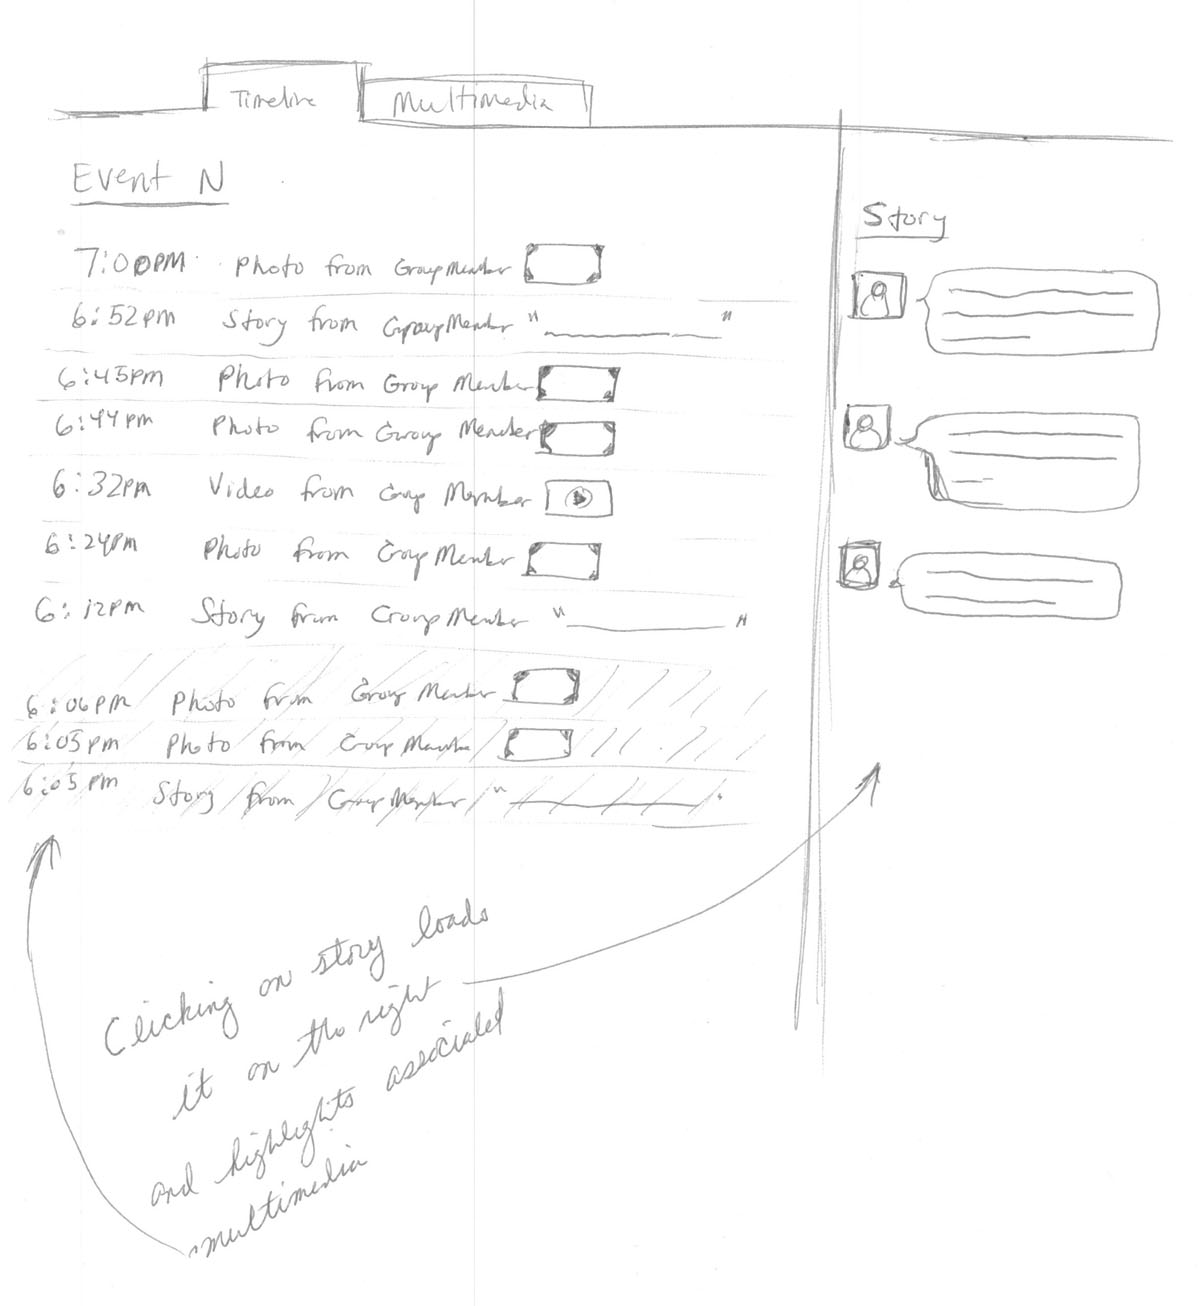 Timeline
Multimedia
Event N
7:00PM Photo from GroupMember
6:52pm Story from GroupMember " "
6:45pm Photo from Group Member
6:44pm Photo from Group Member
6:32pm Video from Group Member
6:24pm Photo from Group Member
6:12pm Story from GroupMember " "
6:06PM Photo from Group Member
6:05pm Photo from Group Member
6:05pm Story from GroupMember " "
Story
Clicking on story loads
it on the right
and highlights associated
multimedia